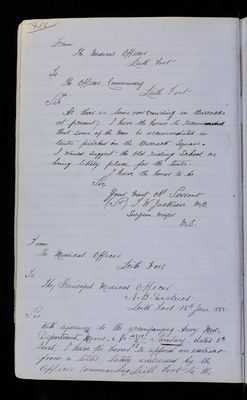 From
The Medical Officer
Leith Fort
To
The Officer Commanding
Leith Fort
Sir
As there is some over crowding in Barracks
at present, I have the honor to recommend
that some of the men be accommodated in
tents pitched on the Barrack Square.
I would suggest the old riding School as
being likely place for the tents.
I have the honor to be
Sir
Your most obt Servant
Jackson M.B.
Surgeon Major
From
The Medical Officer
Leith Fort
To
The Principal Medical Officer
N.B. District
Leith Fort 13th June 1882
Sir
With reference to the accompanying Army Med.
Department, Memo, Sanitary dated 5th
Inst. I have the honor to append an extract
from a letter lately addressed by the
Officer Commanding Leith Fort to the